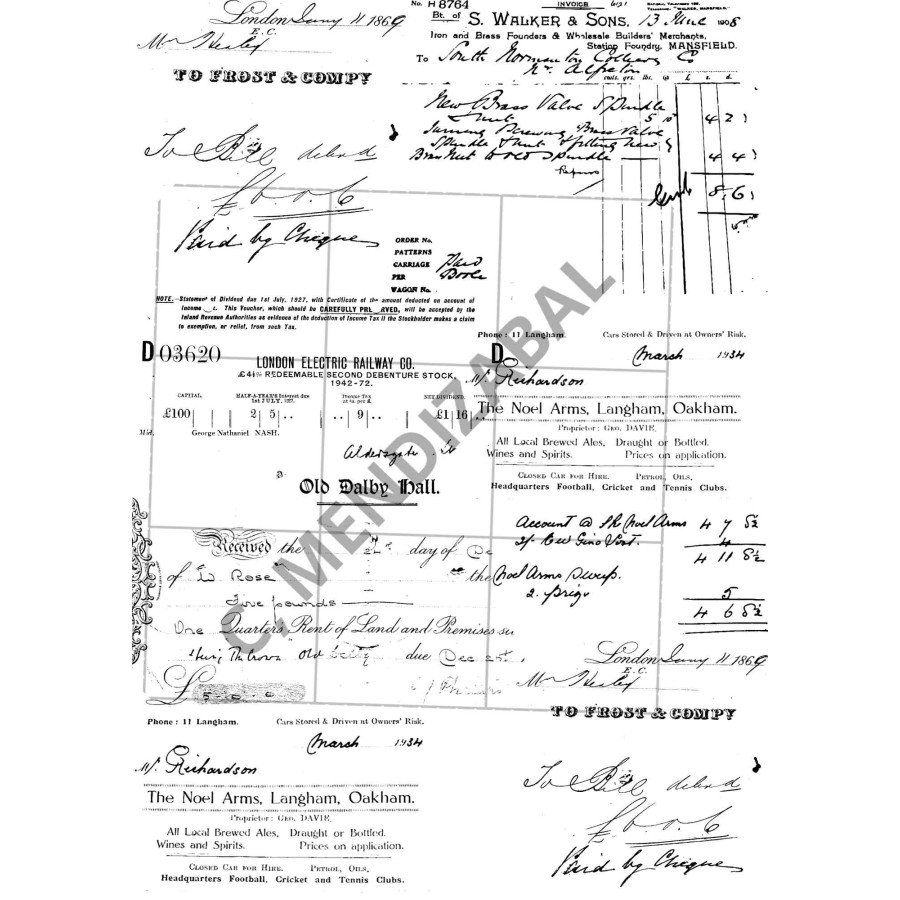 London Jany 11 1869
E.C.
Mr Hesley
TO FROST & COMPY
To Bill delivd
£6.0.6
Paid by Cheque
No. H 8764
INVOICE
Bt. of S. WALKER & SONS, 13 June 1908
Iron and Brass Founders & Wholesale Builders' Merchants,
Station Foundry, MANSFIELD.
To South Normanton Colliery Co
Nr. Alfreton
cwts. qrs. lbs. @ £ s. d.
New Brass Valve Spindle
& nut 5 10 4 2
Turning Screwing Brass Valve
Spindle & nut & fitting new
Brass Nut to old Spindle 4 4
8 6
ORDER No.
PATTERNS
CARRIAGE Paid
PER
WAGON No.
NOTE.—Statement of Dividend due 1st July, 1927, with Certificate of the amount deducted on account of
Income This Voucher, which should be CAREFULLY PRE RVED, will be accepted by the
Inland Revenue Authorities as evidence of the deduction of Income Tax if the Stockholder makes a claim
to exemption, or relief, from such Tax.
D03620
LONDON ELECTRIC RAILWAY CO.
£4½% REDEEMABLE SECOND DEBENTURE STOCK,
1942-72.
CAPITAL HALF-A-YEAR'S Interest due 1st JULY, 1927. Income Tax NET DIVIDEND
£100 2 5 .. .. 9 .. £1 16 ..
Mid. George Nathaniel NASH.
Aldersgate St
Old Dalby Hall.
Received the day of De
of W Rose the
Five pounds
One Quarters Rent of Land and Premises
Old Dalby due Dec 25th
£5-0-0
Phone: 11 Langham. Cars Stored & Driven at Owners' Risk.
D March 1934
Mr Richardson
The Noel Arms, Langham, Oakham.
Proprietor: GEO. DAVIE.
All Local Brewed Ales, Draught or Bottled.
Wines and Spirits. Prices on application.
CLOSED CAR FOR HIRE. PETROL, OILS,
Headquarters Football, Cricket and Tennis Clubs.
Account @ The Noel Arms 4 7 8½
4
4 11 8½
Noel Arms Sweep.
2. Prize 5
4 6 8½
London Jany 11 1869
E.C.
Mr Hesley
TO FROST & COMPY
To Bill delivd
£6.0.6
Paid by Cheque
Phone: 11 Langham. Cars Stored & Driven at Owners' Risk.
March 1934
Mr Richardson
The Noel Arms, Langham, Oakham.
Proprietor: GEO. DAVIE.
All Local Brewed Ales, Draught or Bottled.
Wines and Spirits. Prices on application.
CLOSED CAR FOR HIRE. PETROL, OILS,
Headquarters Football, Cricket and Tennis Clubs.
C. MENDIZABAL